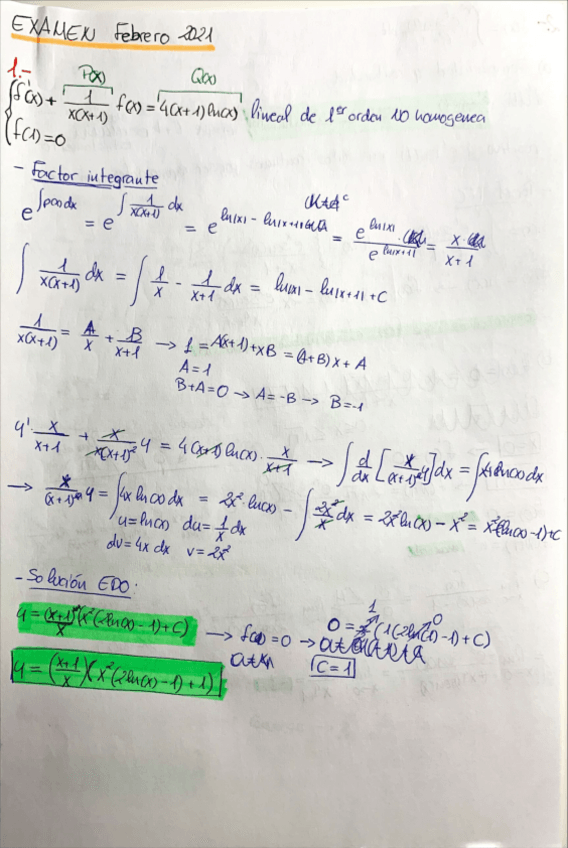 EXAMEN Febrero 2021
1.-
P(x) Q(x)
f'(x) + 1/x(x+1) f(x) = 4(x+1) ln(x) · lineal de 1er orden NO homogénea
f(1) = 0
- Factor integrante
e^∫p(x)dx = e^∫1/x(x+1) dx = e^ln|x| - ln|x+1| = e^ln|x| / e^ln|x+1| = x/x+1
∫ 1/x(x+1) dx = ∫ 1/x - 1/x+1 dx = ln|x| - ln|x+1| + C
1/x(x+1) = A/x + B/x+1 → 1 = A(x+1) + xB = (A+B)x + A
A = 1
B+A = 0 → A = -B → B = -1
y' x/x+1 + x/x(x+1)² y = 4(x+1) ln(x) · x/x+1 → ∫ d/dx [x/(x+1) y] dx = ∫4x ln(x) dx
→ x/(x+1) y = ∫4x ln(x) dx = 2x² · ln(x) - ∫ 2x²/x dx = 2x² ln(x) - x² = x²(2ln(x) - 1) + C
u = ln(x) du = 1/x dx
dv = 4x dx v = 2x²
- Solución EDO:
y = (x+1)/x (x²(2ln(x) - 1) + C) → f(1) = 0 → 0 = 2/1 (1(2ln(1) - 1) + C)
C = 1
y = (x+1/x)(x²(2ln(x) - 1) + 1)